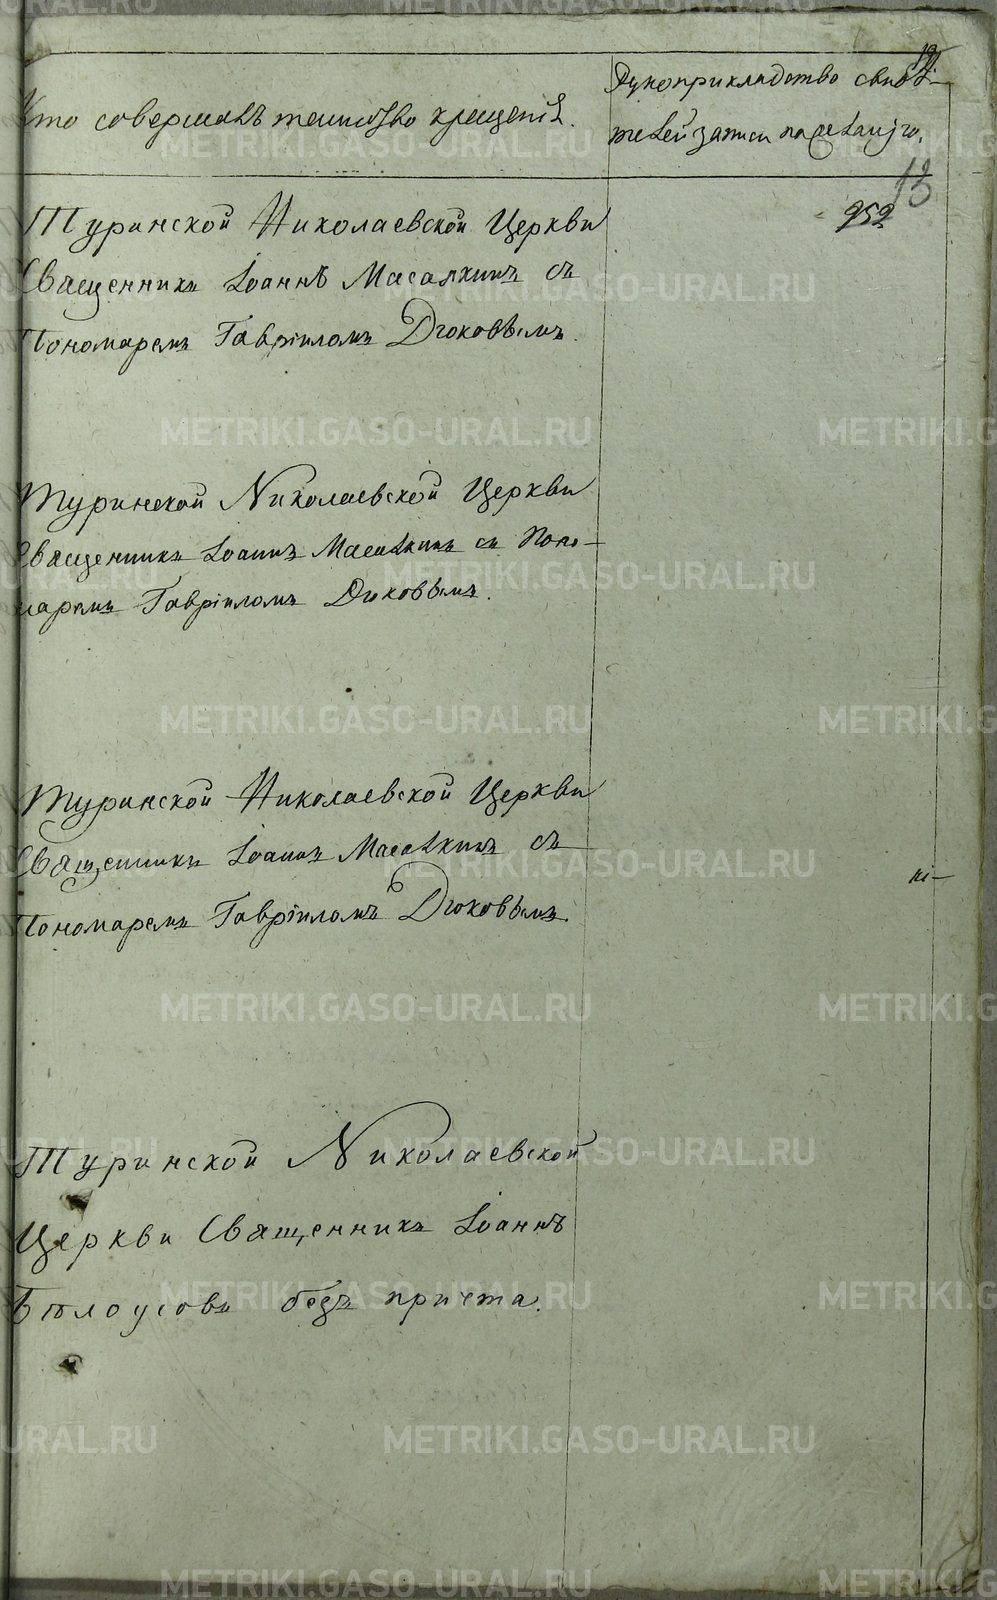 Кто совершалъ таинство крещенія.
Рукоприкладство свидѣ-
телей записи по желанію.
13
252
Туринской Николаевской Церкви
Священникъ Іоаннъ Масалкинъ съ
Пономаремъ Гавріиломъ Дюковымъ.
Туринской Николаевской Церкви
Священникъ Іоаннъ Масалкинъ съ Поно-
маремъ Гавріиломъ Дюковымъ.
Туринской Николаевской Церкви
Священникъ Іоаннъ Масалкинъ съ
Пономаремъ Гавріиломъ Дюковымъ.
Туринской Николаевской
Церкви Священникъ Іоаннъ
Бѣлоусовъ безъ причта.
METRIKI.GASO-URAL.RU